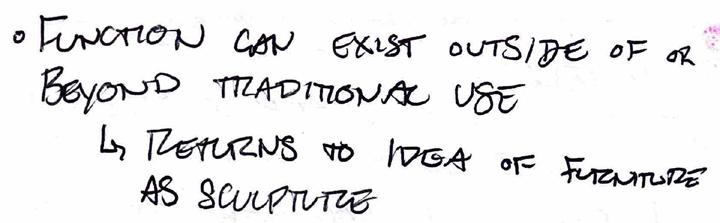 • FUNCTION CAN EXIST OUTSIDE OF OR
BEYOND TRADITIONAL USE
↳ RETURNS TO IDEA OF FURNITURE
AS SCULPTURE